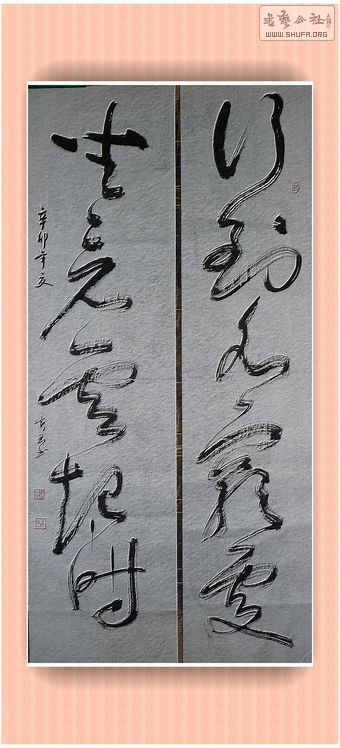 行到水穷处
坐看云起时
辛卯年夏
书艺公社
WWW.SHUFA.ORG